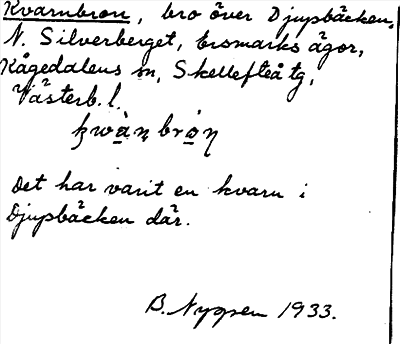 Kvarnbron, bro över Djupbäcken,
N. Silverberget, Ersmarks ägor,
Kågedalens sn, Skellefteå tg,
Västerb. l.
Det har varit en kvarn i
Djupbäcken där.
B. Nygren 1933.